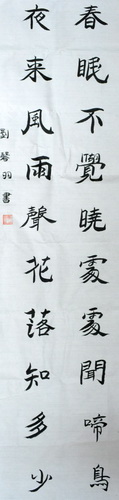 春眠不覺曉處處聞啼鳥
夜来風雨聲花落知多少
劉琴羽書